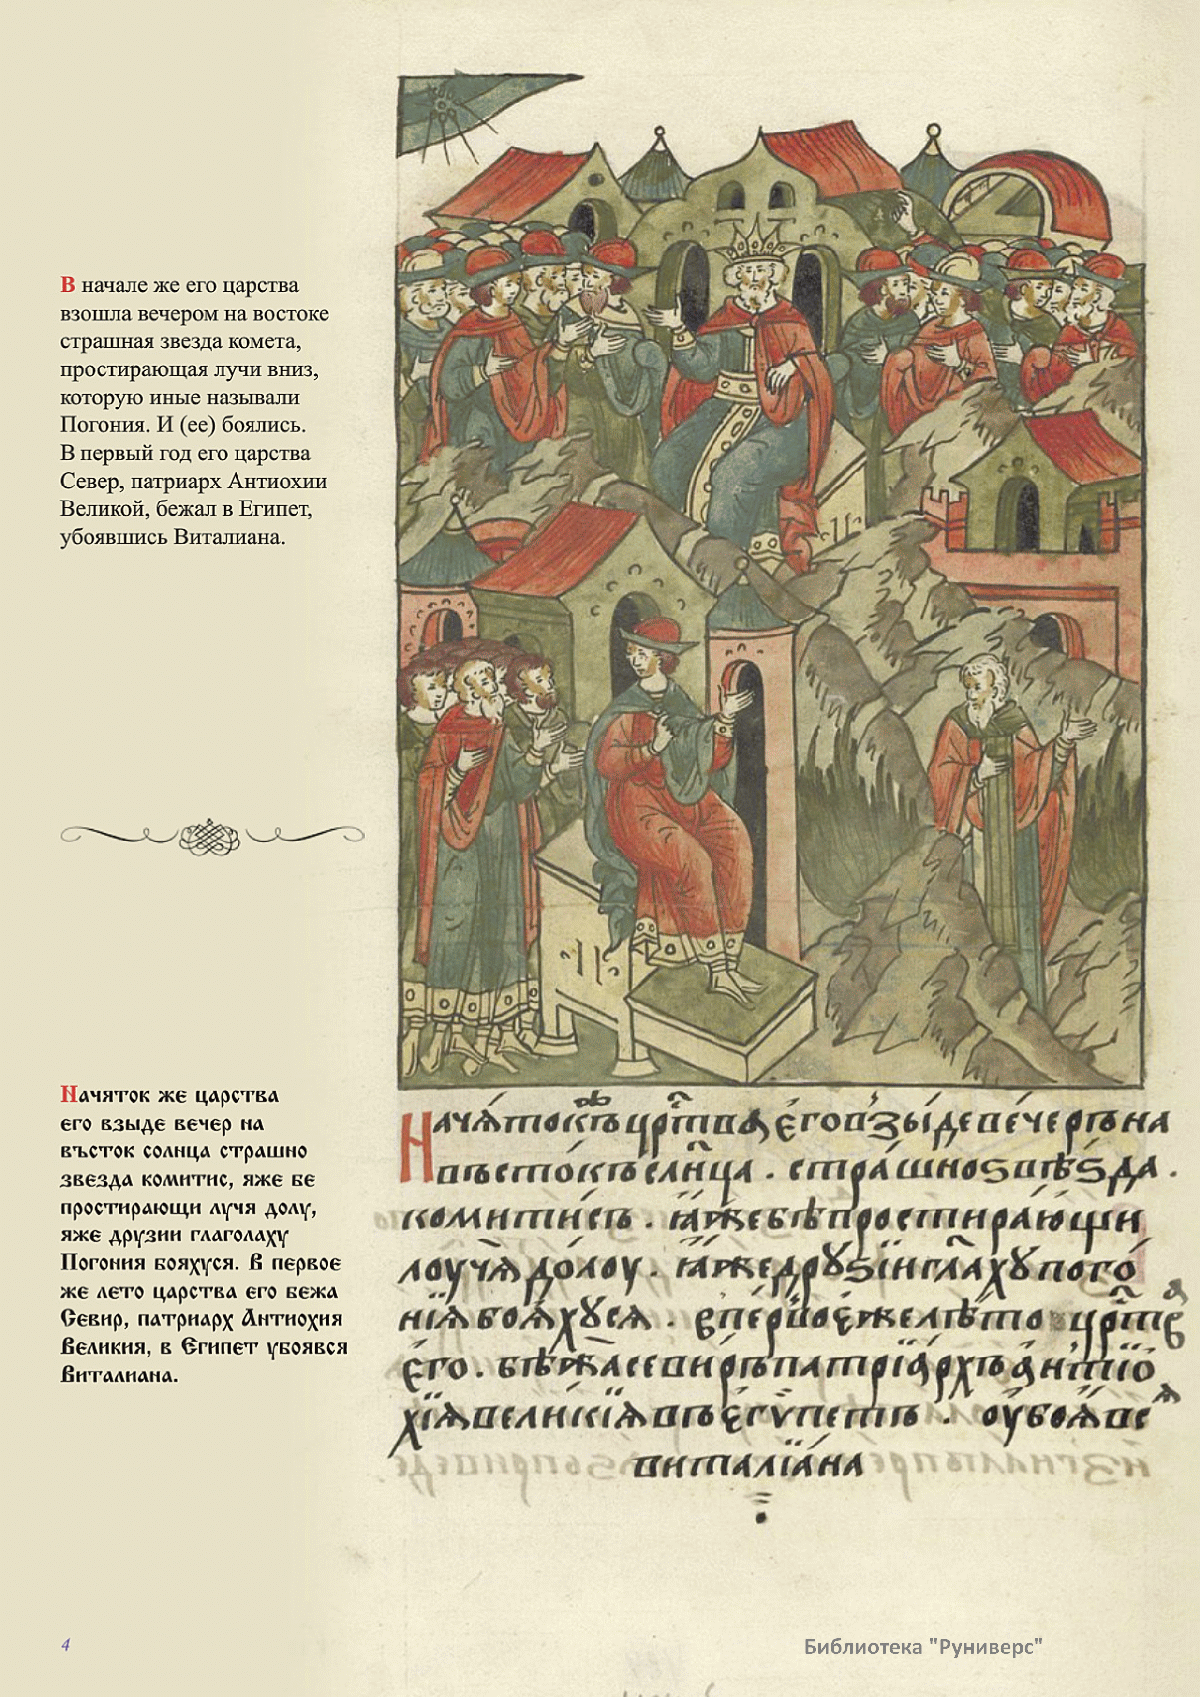 В начале же его царства
взошла вечером на востоке
страшная звезда комета,
простирающая лучи вниз,
которую иные называли
Погония. И (ее) боялись.
В первый год его царства
Север, патриарх Антиохии
Великой, бежал в Египет,
убоявшись Виталиана.
Начяток же царства
его взыде вечер на
въсток солнца страшно
звезда комитис, яже бе
простирающи лучя долу,
яже друзии глаголаху
Погония бояхуся. В первое
же лето царства его бежа
Севир, патриарх Антиохия
Великия, в Египет убоявся
Виталиана.
Начѧ́токъ же црⷭ҇тва є҆го взы́де ве́черъ на
въсто́къ слн҃ца . стра́шно ѕвѣѕда .
комити́съ . ꙗ҆́же бѣ простира́ющи
лоучѧ̀ до́лоу . ꙗ҆́же дрꙋѕїи гл҃ахꙋ пого́
нїѧ боѧ́хꙋсѧ . в пе́рвое же лѣ́то црⷭ҇тва
є҆го . бѣжа̀ севи́ръ патрїа́рхъ а҆нтїо
хїѧ вели́кїѧ въ є҆гѵ́петъ . оу҆боѧ́всѧ
витали́ана
4
Библиотека "Руниверс"